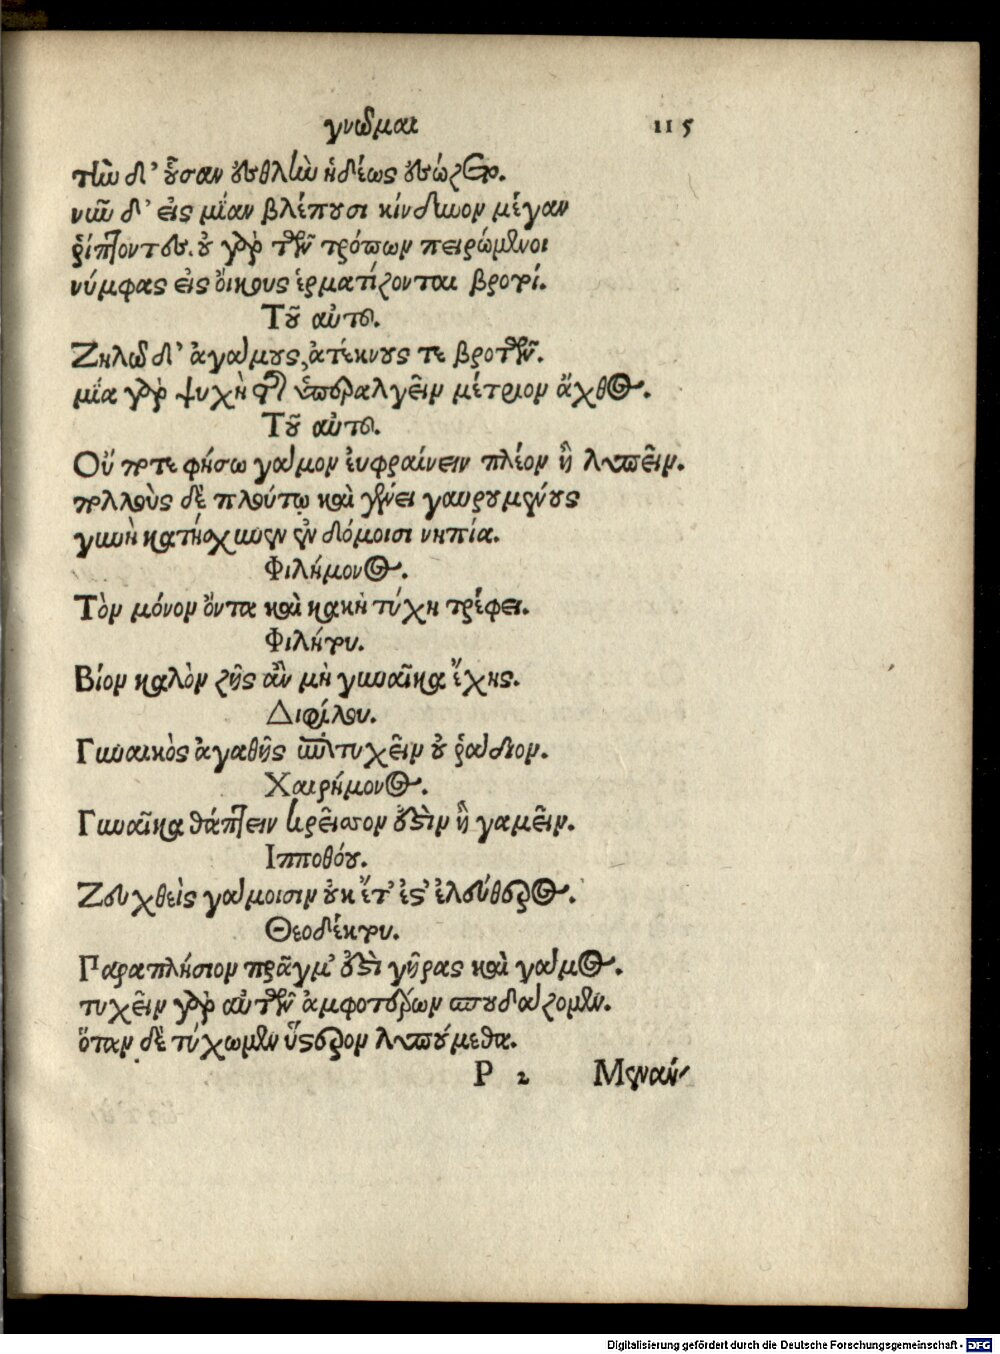 γνῶμαι 115
τὴν δ' οὖσαν ἐσθλὴν ἡδέως ἐκώζετο.
νῦν δ' εἰς μίαν βλέπουσι κίνδυνον μέγαν
ῥίπτοντες. οὐ γὰρ τῶν τρόπων πειρώμενοι
νύμφας εἰς οἴκους ἑρματίζονται βροτοί.
Τοῦ αὐτοῦ.
Ζηλῶ δ' ἀγάμους, ἀτέκνους τε βροτῶν.
μία γὰρ ψυχὴ τῆς ὑπεραλγεῖν μέτριον ἄχθος.
Τοῦ αὐτοῦ.
Οὔ ποτε φήσω γάμον ἐυφραίνειν πλέον ἢ λυπεῖν.
πολλοὺς δὲ πλούτῳ καὶ γένει γαυρουμένους
γυνὴ κατήσχυνεν ἐν δόμοισι νηπία.
Φιλήμονος.
Τὸν μόνον ὄντα καὶ κακὴ τύχη τρέφει.
Φιλήτου.
Βίον καλὸν ζῇς ἂν μὴ γυναῖκα ἔχῃς.
Διφίλου.
Γυναικὸς ἀγαθῆς ἐπιτυχεῖν οὐ ῥᾴδιον.
Χαιρήμονος.
Γυναῖκα θάπτειν κρεῖσσον ἐστὶν ἢ γαμεῖν.
Ιπποθόου.
Ζευχθεὶς γάμοισιν οὐκ ἔτ' ἔς' ἐλεύθερος.
Θεοδέκτου.
Παραπλήσιον πρᾶγμ' ἐστὶ γῆρας καὶ γάμος.
τυχεῖν γὰρ αὐτῶν ἀμφοτέρων σπουδάζομεν.
ὅταν δὲ τύχωμεν ὕστερον λυπούμεθα.
P 2 Μεναν⸗
Digitalisierung gefördert durch die Deutsche Forschungsgemeinschaft - DFG